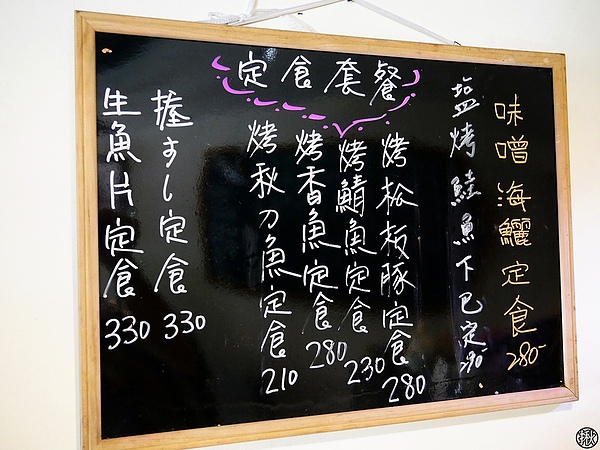 定食套餐
味噌海鱺定食 280-
塩烤鮭魚下巴定 290
烤松板豚定食 280
烤鯖魚定食 230
烤香魚定食 280
烤秋刀魚定食 210
握すし定食 330
生魚片定食 330